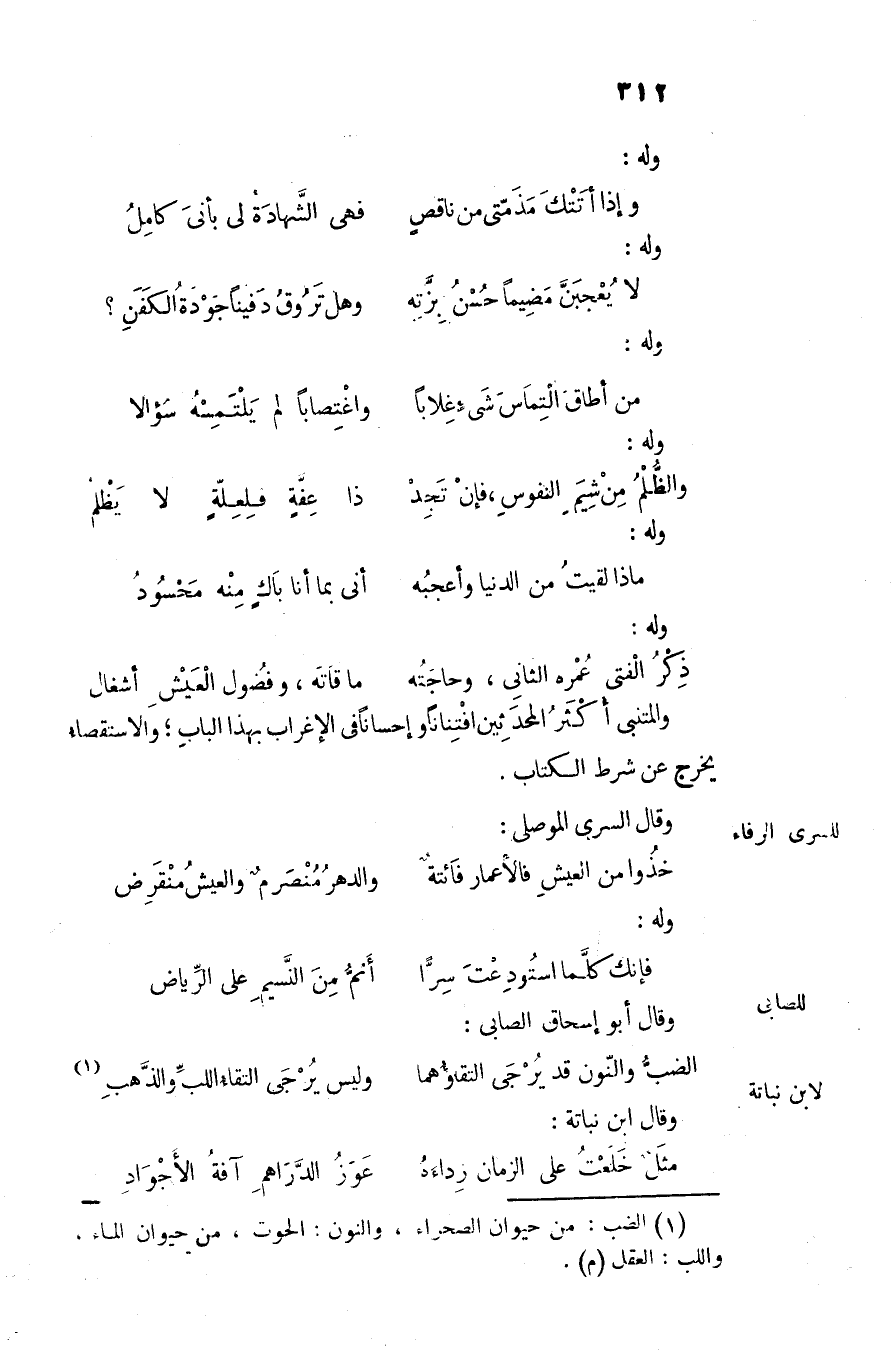 ٣١٢
وله :
وإذا أتَتْكَ مَذَمّتي من ناقصٍ فهى الشَّهادَةُ لى بأنىَ كامِلُ
وله :
لا يُعْجبَنَّ مَضِيماً حُسْنُ بِزَّتِه وهل تَرُوقُ دَفيناً جَوْدَةُ الكَفَنِ ؟
وله :
من أطاقَ الْتِماَسَ شَىءٍ غِلاباً واغْتِصاباً لم يَلْتَمِسْهُ سُؤالا
وله :
والظُّلْمُ مِنْ شِيَمِ النفوسِ ، فإنْ تَجِدْ ذا عِفَّةٍ فلِعِلّةٍ لا يَظْلِمُ
وله :
ماذا لقيتُ من الدنيا وأعجبُه أنى بما أنا بَاكٍ مِنْه مَحْسُودُ
وله :
ذِكْرُ الْفتى عُمْره الثانى ، وحاجَتُه ما قاَتَه ، وفضُول الْعَيْشِ أشغال
والمتنبى أكْثَرُ المحدَثِين افْتِناناً وإحساناً فى الإغراب بهذا البابِ ؛ والاستقصاء
يخرج عن شرط الكتاب .
للسرى الرفاء
وقال السرى الموصلى :
خذُوا من العيشِ فالأعمار فاَئتةٌ والدهرُ مُنْصَرمٌ والعيشُ مُنْقَرِض
وله :
فإنك كلَّما استُودِعْتَ سِرًّا أَنمُّ مِنَ النَّسيمِ على الرِّياض
للصابى
وقال أبو إسحاق الصابى :
الضبُّ والنّون قد يُرْجَى التقاؤهما وليس يُرْجَى التقاء اللبِّ والذَّهبِ (١)
لابن نباتة
وقال ابن نباتة :
مثَلٌ خَلَعْتُ على الزمان رِداءَهُ عَوَزُ الدَّرَاهمِ آفةُ الأَجْوَادِ
(١) الضب : من حيوان الصحراء ، والنون : الحوت ، من حيوان الماء .
واللب : العقل (م) .